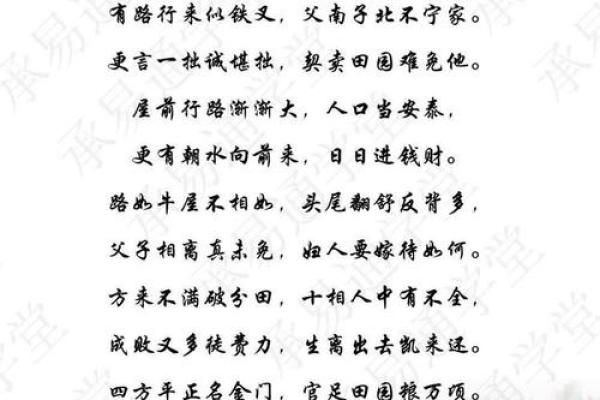 有路行来似铁叉，父南子北不宁家。
更言一拙诚堪拙，契卖田园难免他。
屋前行路渐渐大，人口当安泰，
更有朝水向前来，日日进钱财。
路如牛屋不相如，头尾翻舒反背多，
父子相离真未免，妇人要嫁待如何。
方来不满破分田，十相人中有不全，
成败又多徒费力，生离出去凯来还。
四方平正名金门，官足田园粮万顷。
承易通学堂